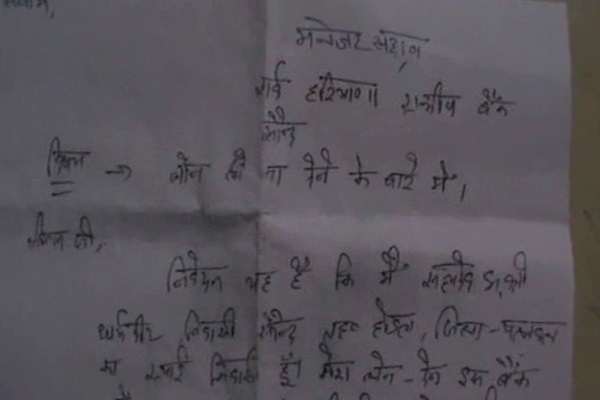 सेवा में,
मैनेजर साहब,
सर्व हरियाणा ग्रामीण बैंक
सौन्द
विषय → लोन ही ना देने के बारे में।
श्रीमान जी,
निवेदन यह है कि मैं सहदेव
निवासी सौन्द तह० होडल, जिला - पलवल
का स्थाई निवासी हूँ। मेरा लेन - देन इस बैंक